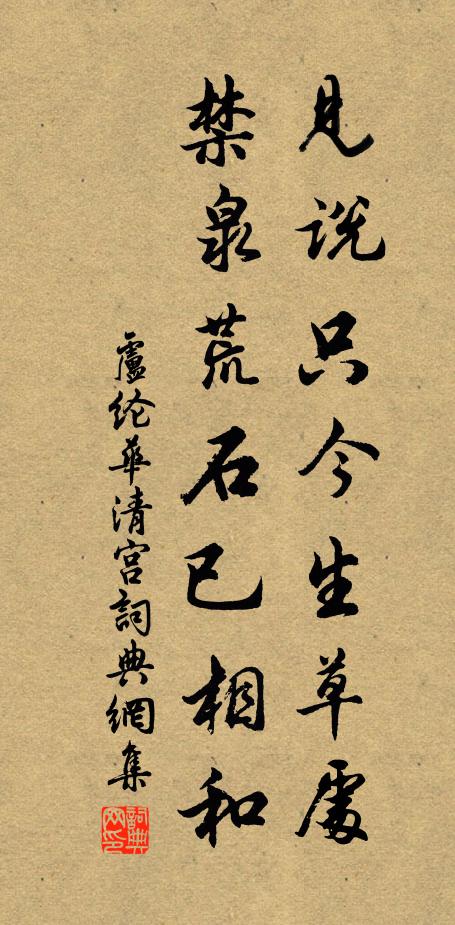 見説只今生草處
禁泉荒石已相和
盧纶華清宫詞典網集
詞典网印